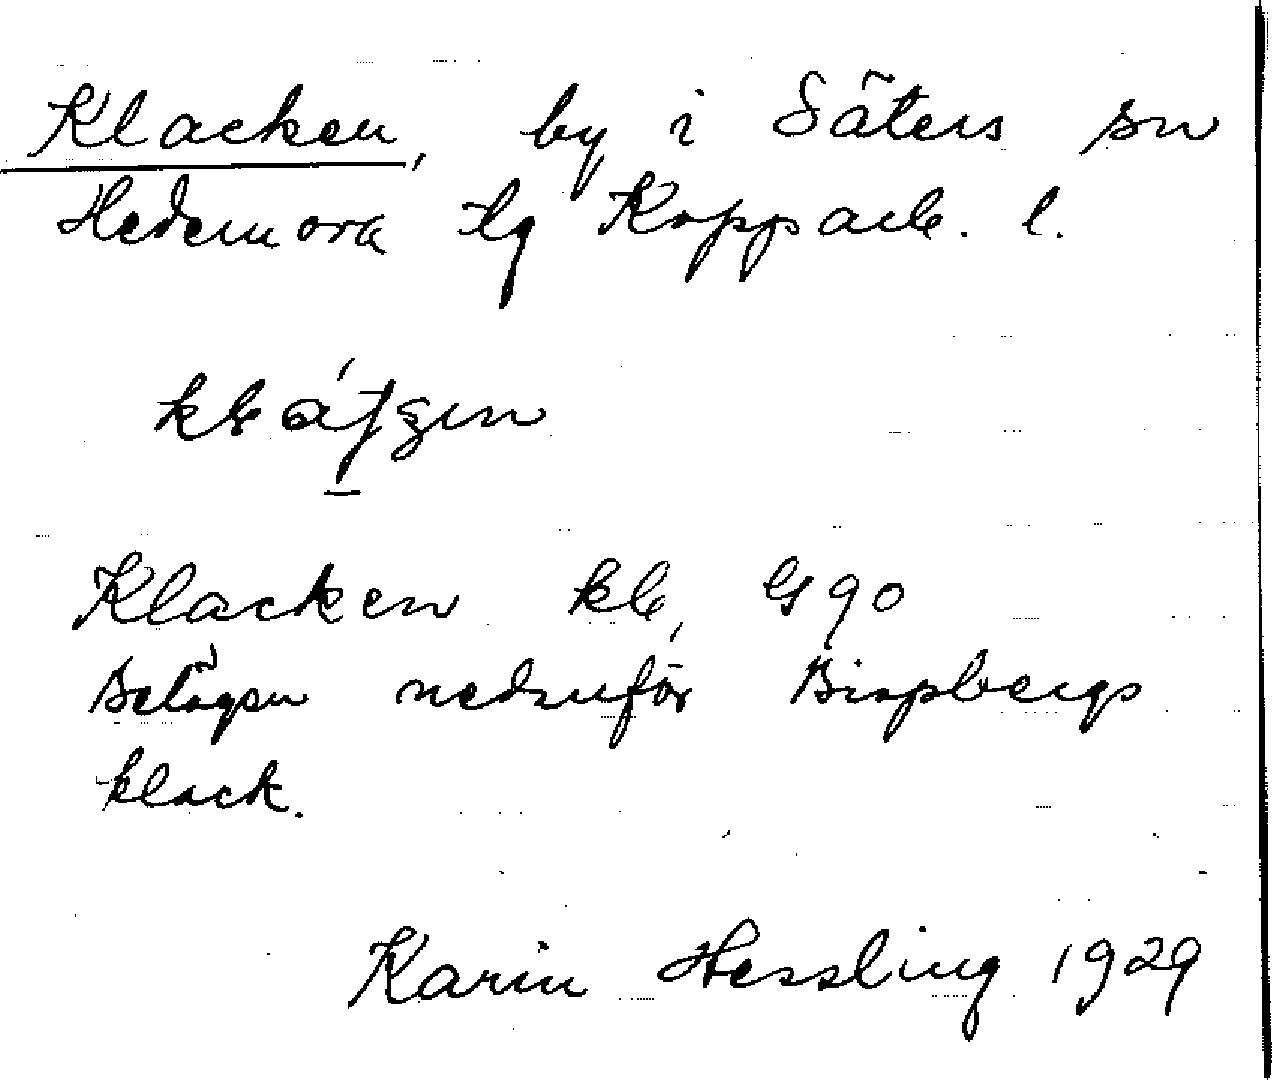 Klacken, by i Säters sn
Hedemora tg Kopparb. l.
Klacken kb, G 90
Belägen nedanför Bispbergs
klack.
Karin Hessling 1929